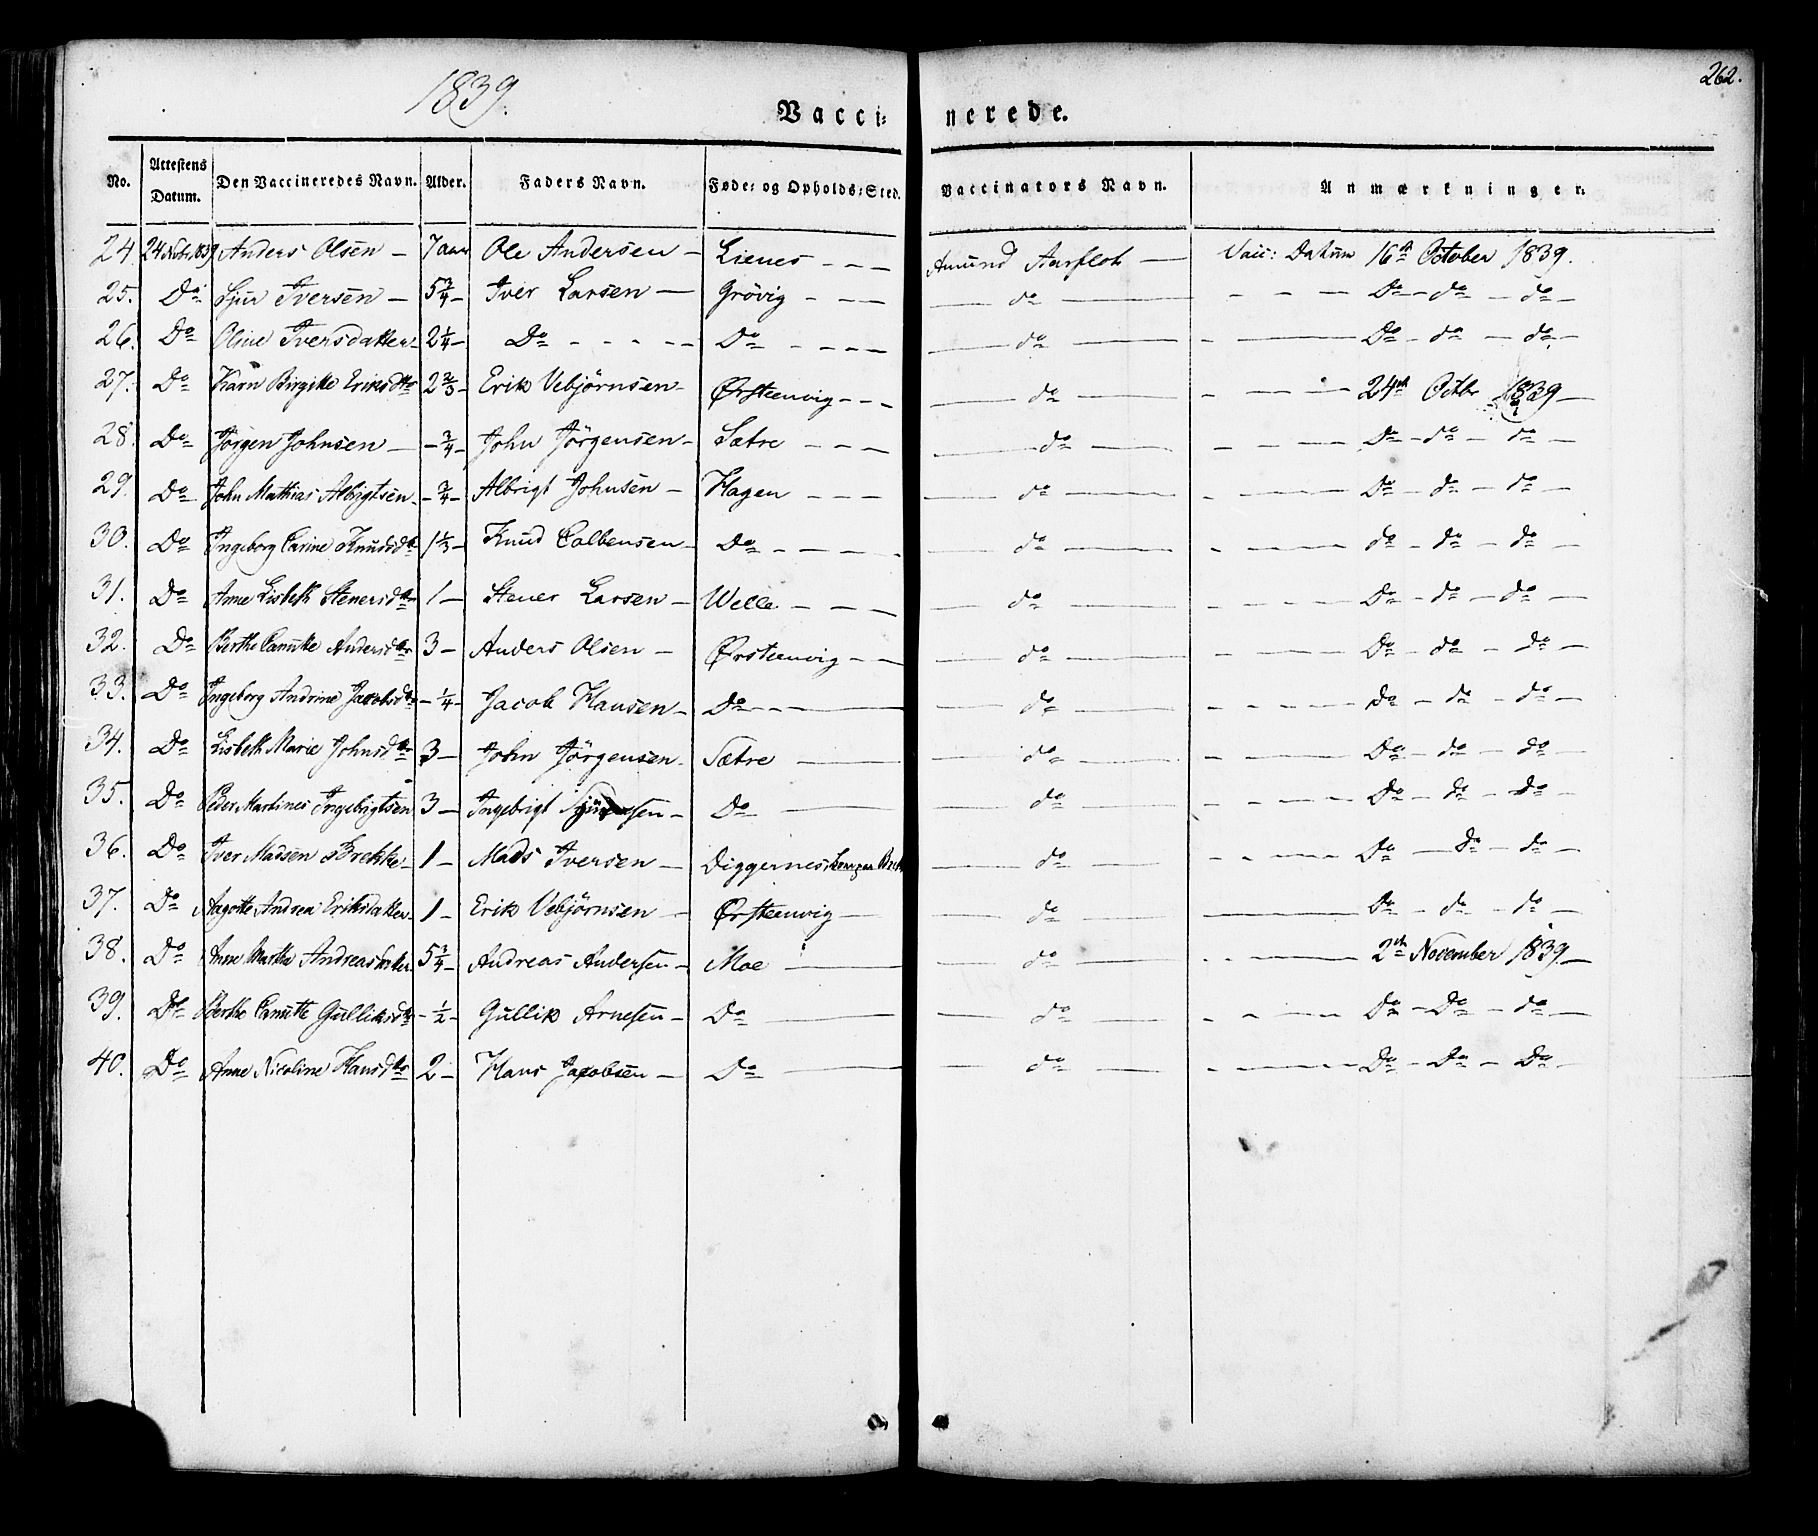 1839.
262.
Vaccinerede.
No. Attestens Datum. Den Vaccineredes Navn. Alder. Faders Navn. Føde- og Opholds-Sted. Vaccinators Navn. Anmærkninger.
24. 24 Nvbr 1839 Anders Olsen — 7 aar Ole Andersen — Lienes - - - Amund Aarflot — Vacc: Datum 16de October 1839.
25. Do Sjur Iversen — 5 3/4 - Iver Larsen — Grövig - - - do - - - Do - do - do -
26. Do Oline Iversdatter - 2 1/4 - Do - - - - Do - - - - do - Do - do - do.
27. Do Karn Birgitte Eriksdtr 2 2/3 - Erik Vebjörnsen - Ørsteenvig - - - do - - - 24de Octbr 1839 -
28. Do Jörgen Johnsen - - 3/4 - John Jörgensen - Sætre - - - do - - - Do - do - do -
29. Do John Mathias Albrigtsen - - 3/4 - Albrigt Johnsen - Hagen - - - do - - Do - do - do -
30. Do Ingeborg Carine Knudsdtr 1 1/3 - Knud Colbensen - Do - - - - do - - do - do - do -
31. Do Anne Lisbeth Stenersdtr 1 - Stener Larsen - Welle - - - do - - - Do - do - do -
32. Do Berthe Canutte Andersdtr 3 - Anders Olsen - Ørsteenvig - - do - - - Do - do - do -
33. Do Ingeborg Andrine Jacobsdtr - 1/4 - Jacob Hansen - Do - - - do - - - do - do - do -
34. Do Lisbeth Marie Johnsdtr 3 - John Jörgensen - Sætre — do - - - Do - do - do -
35. Do Peder Martines Ingebrigtsen 3 - Ingebrigt - Do — do - - - Do - do - do
36. Do Iver Madsen Brekke - 1 - Mads Iversen - Diggernes — do - - - Do - do - do -
37. Do Aagotte Andrea Eriksdatter - 1 - Erik Vebjörnsen - Ørsteenvig — do — Do - do - do -
38. Do Anne Marthe Andreasdatter 5 3/4 - Andreas Andersen - Moe — do - - - 2den November 1839. -
39. Do Berthe Canutte Gulliksdtr - 1/2 - Gullik Arnesen - Do — do - - - Do - Do - do -
40. Do Anne Nicoline Hansdtr 2 - Hans Jacobsen - Do — do - - - Do - Do - Do -